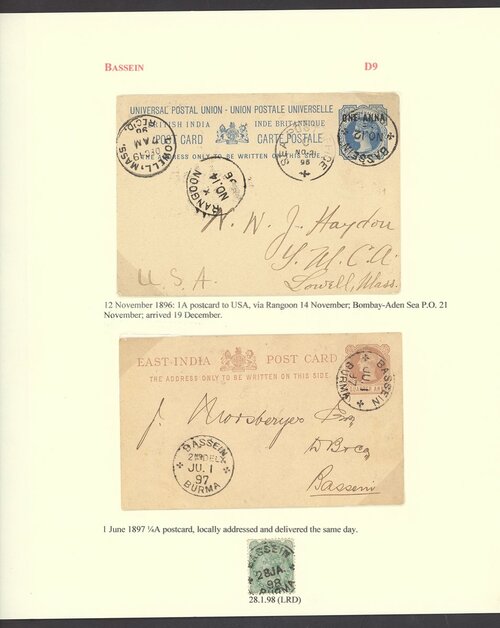 BASSEIN D9
UNIVERSAL POSTAL UNION - UNION POSTALE UNIVERSELLE
BRITISH INDIA INDE BRITANNIQUE
POST CARD CARTE POSTALE
THE ADDRESS ONLY TO BE WRITTEN ON THIS SIDE
ONE ANNA
BASSEIN
NO. 12
LOWELL, MASS.
DEC 19
7 AM
96
REC'D.
RANGOON
NO. 14
96
SEA POST OFFICE
NO. 21
96
W. J. Haydon
Y. M. C. A.
U. S. A. Lowell, Mass.
12 November 1896: 1A postcard to USA, via Rangoon 14 November; Bombay-Aden Sea P.O. 21
November; arrived 19 December.
EAST-INDIA POST CARD
THE ADDRESS ONLY TO BE WRITTEN ON THIS SIDE.
BASSEIN
JU. 1
97
BURMA
J. Esq
Bassein
BASSEIN
2ND DEL.
JU. 1
97
BURMA
1 June 1897 ¼A postcard, locally addressed and delivered the same day.
BASSEIN
28 JA.
98
BURMA
28.1.98 (LRD)